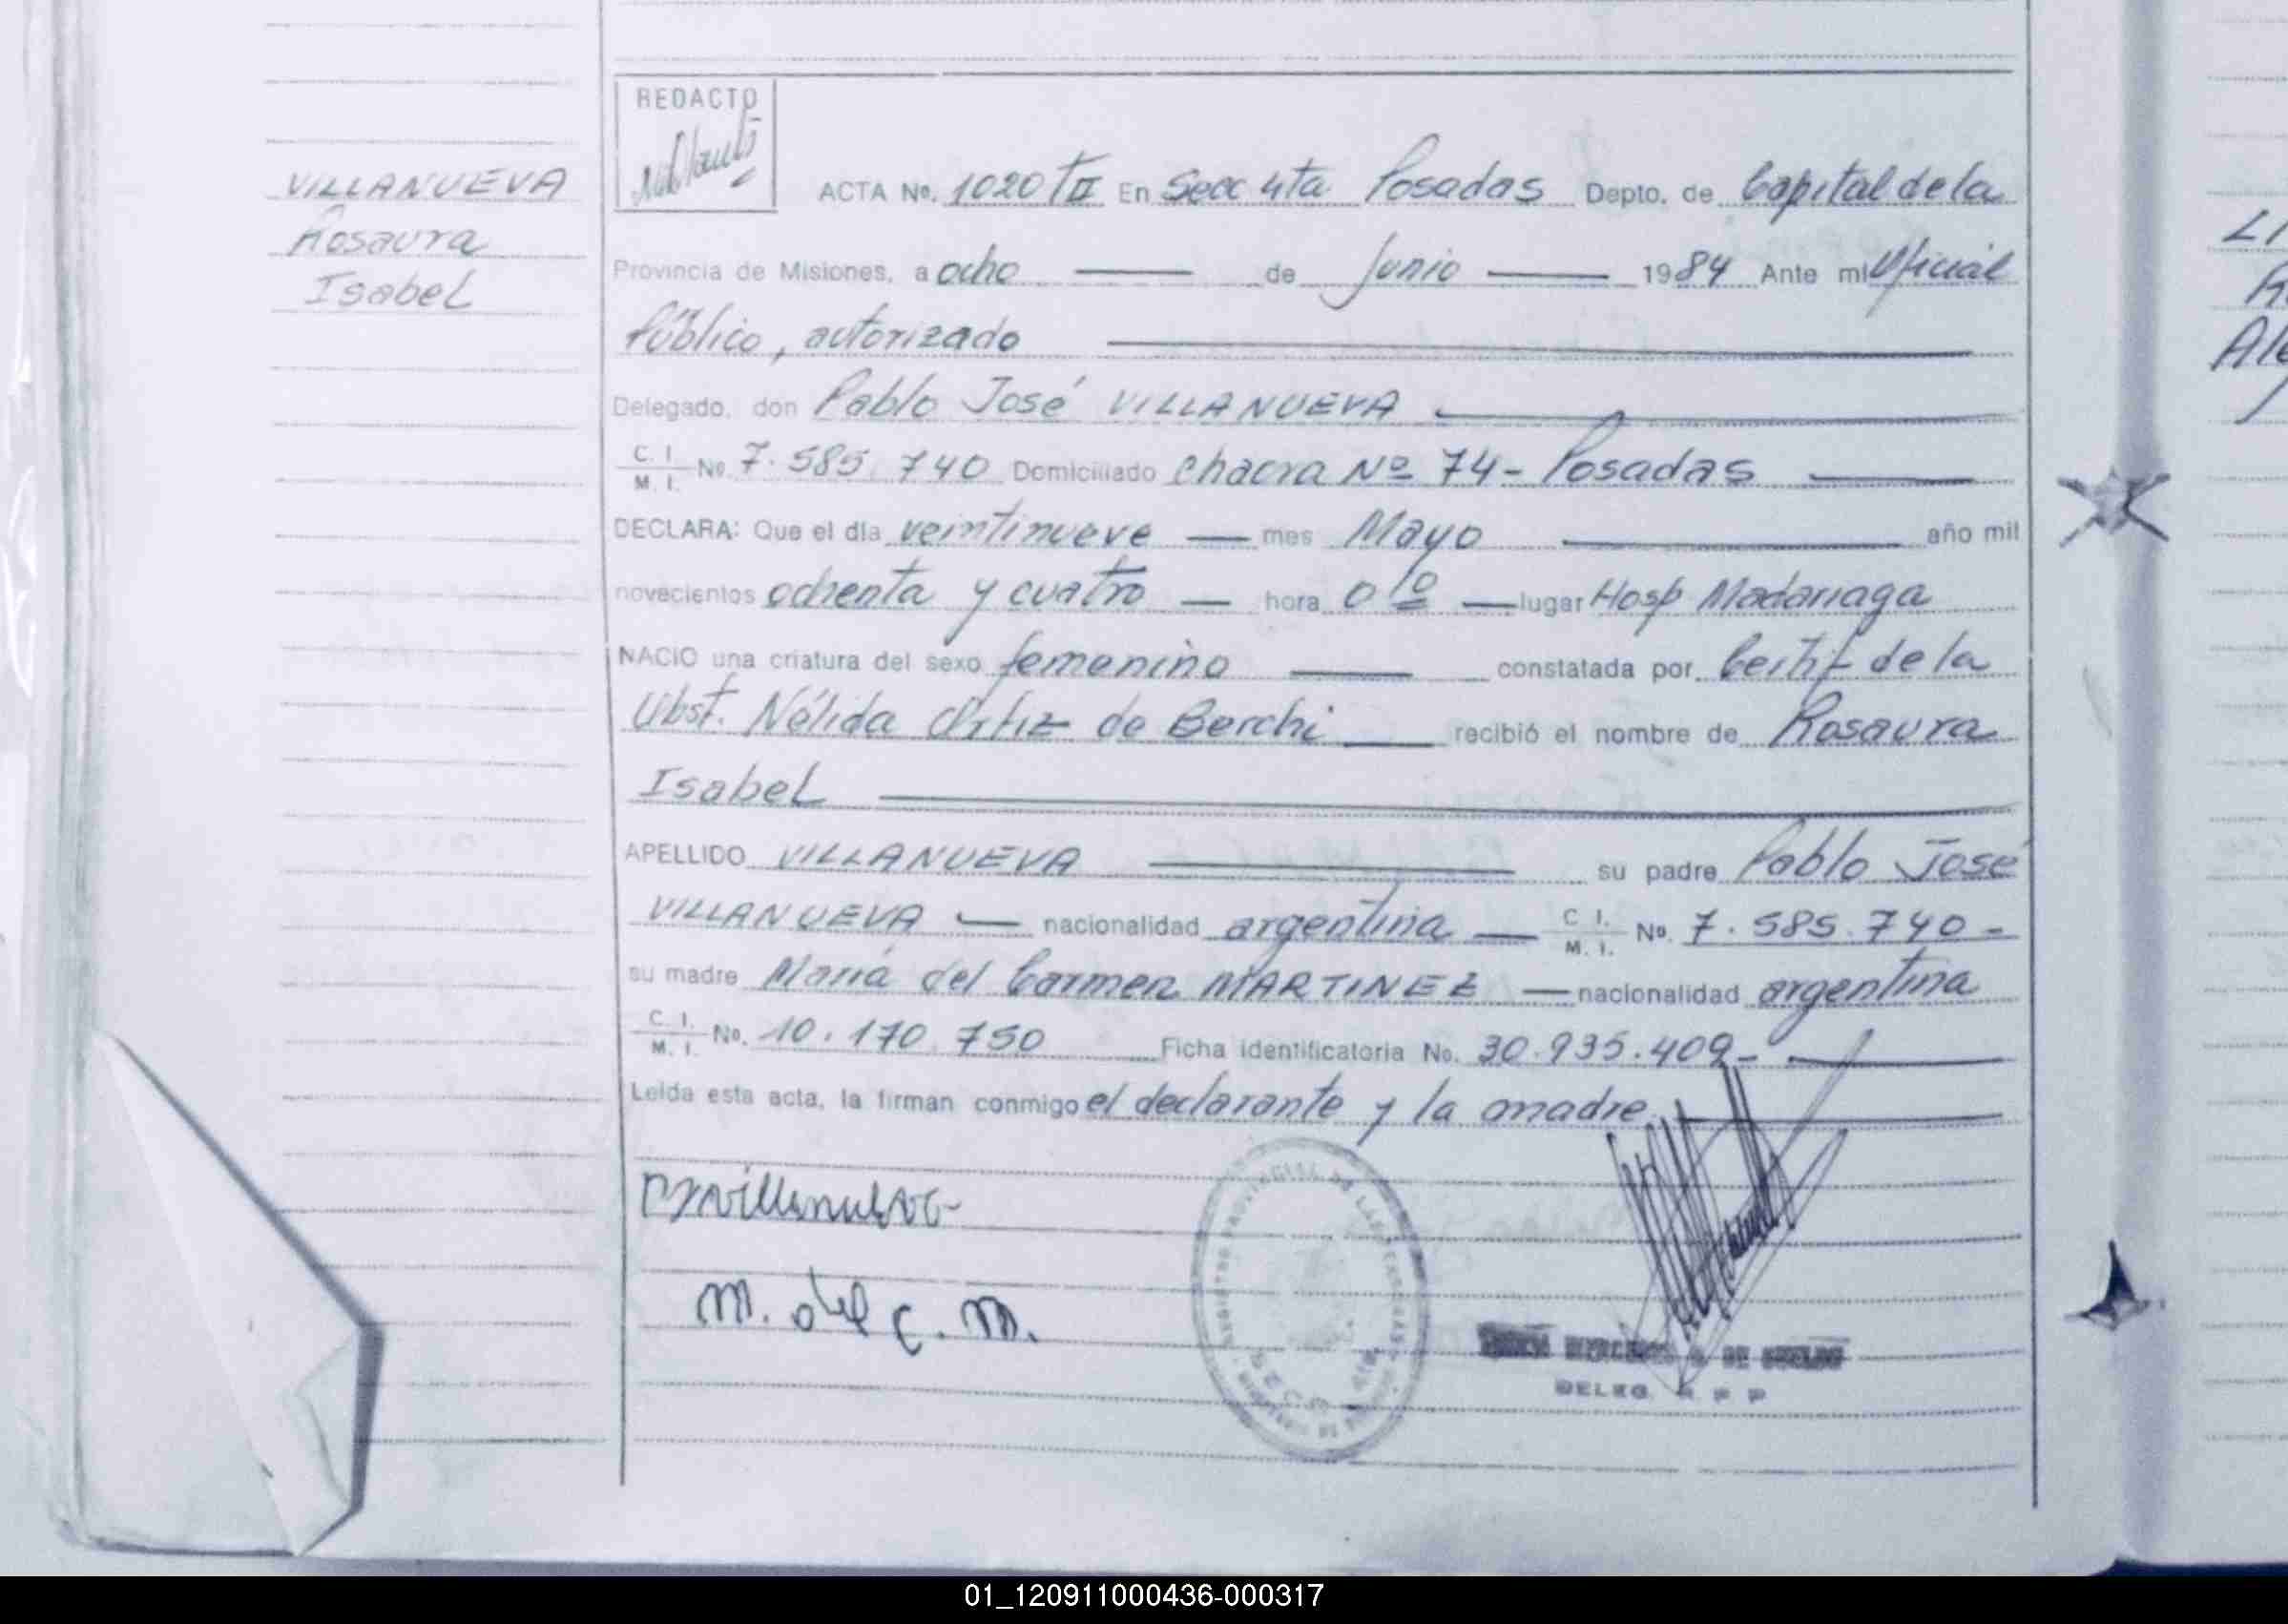 REDACTO
VILLANUEVA
Rosaura
Isabel
ACTA No. 1020 TII En Secc 4ta. Posadas Depto. de Capital de la
Provincia de Misiones, a ocho de Junio 1984 Ante mi Oficial
Público, autorizado
Delegado, don Pablo José VILLANUEVA
C. I. M. I. No. 7.585.740 Domiciliado Chacra Nº 74- Posadas
DECLARA: Que el día veintinueve mes Mayo año mil
novecientos ochenta y cuatro hora 0 10 lugar Hosp Madariaga
NACIO una criatura del sexo femenino constatada por Certif de la
Obst. Nélida Ortiz de Berchi recibió el nombre de Rosaura
Isabel
APELLIDO VILLANUEVA su padre Pablo José
VILLANUEVA nacionalidad argentina C. I. M. I. No. 7.585.740-
su madre María del Carmen MARTINEZ nacionalidad argentina
C. I. M. I. No. 10.170.750 Ficha identificatoria No. 30.935.409-
Leída esta acta, la firman conmigo el declarante y la madre.
PJVillanueva
M. del C. M.
REGISTRO PROVINCIAL DE LAS PERSONAS
DELEG. R P P
LI
R
Ale
01_120911000436-000317